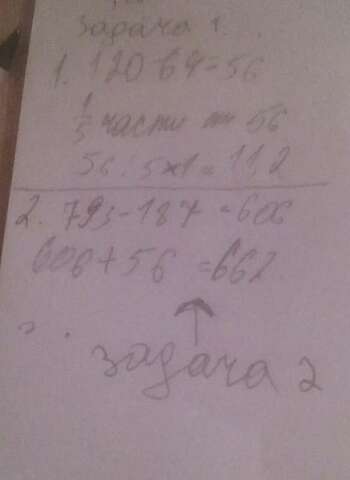 Задача 1.
1. 120 64=56
1/5 части от 56
56:5×1=112
2. 793-187=606
606+56=662
задача 2